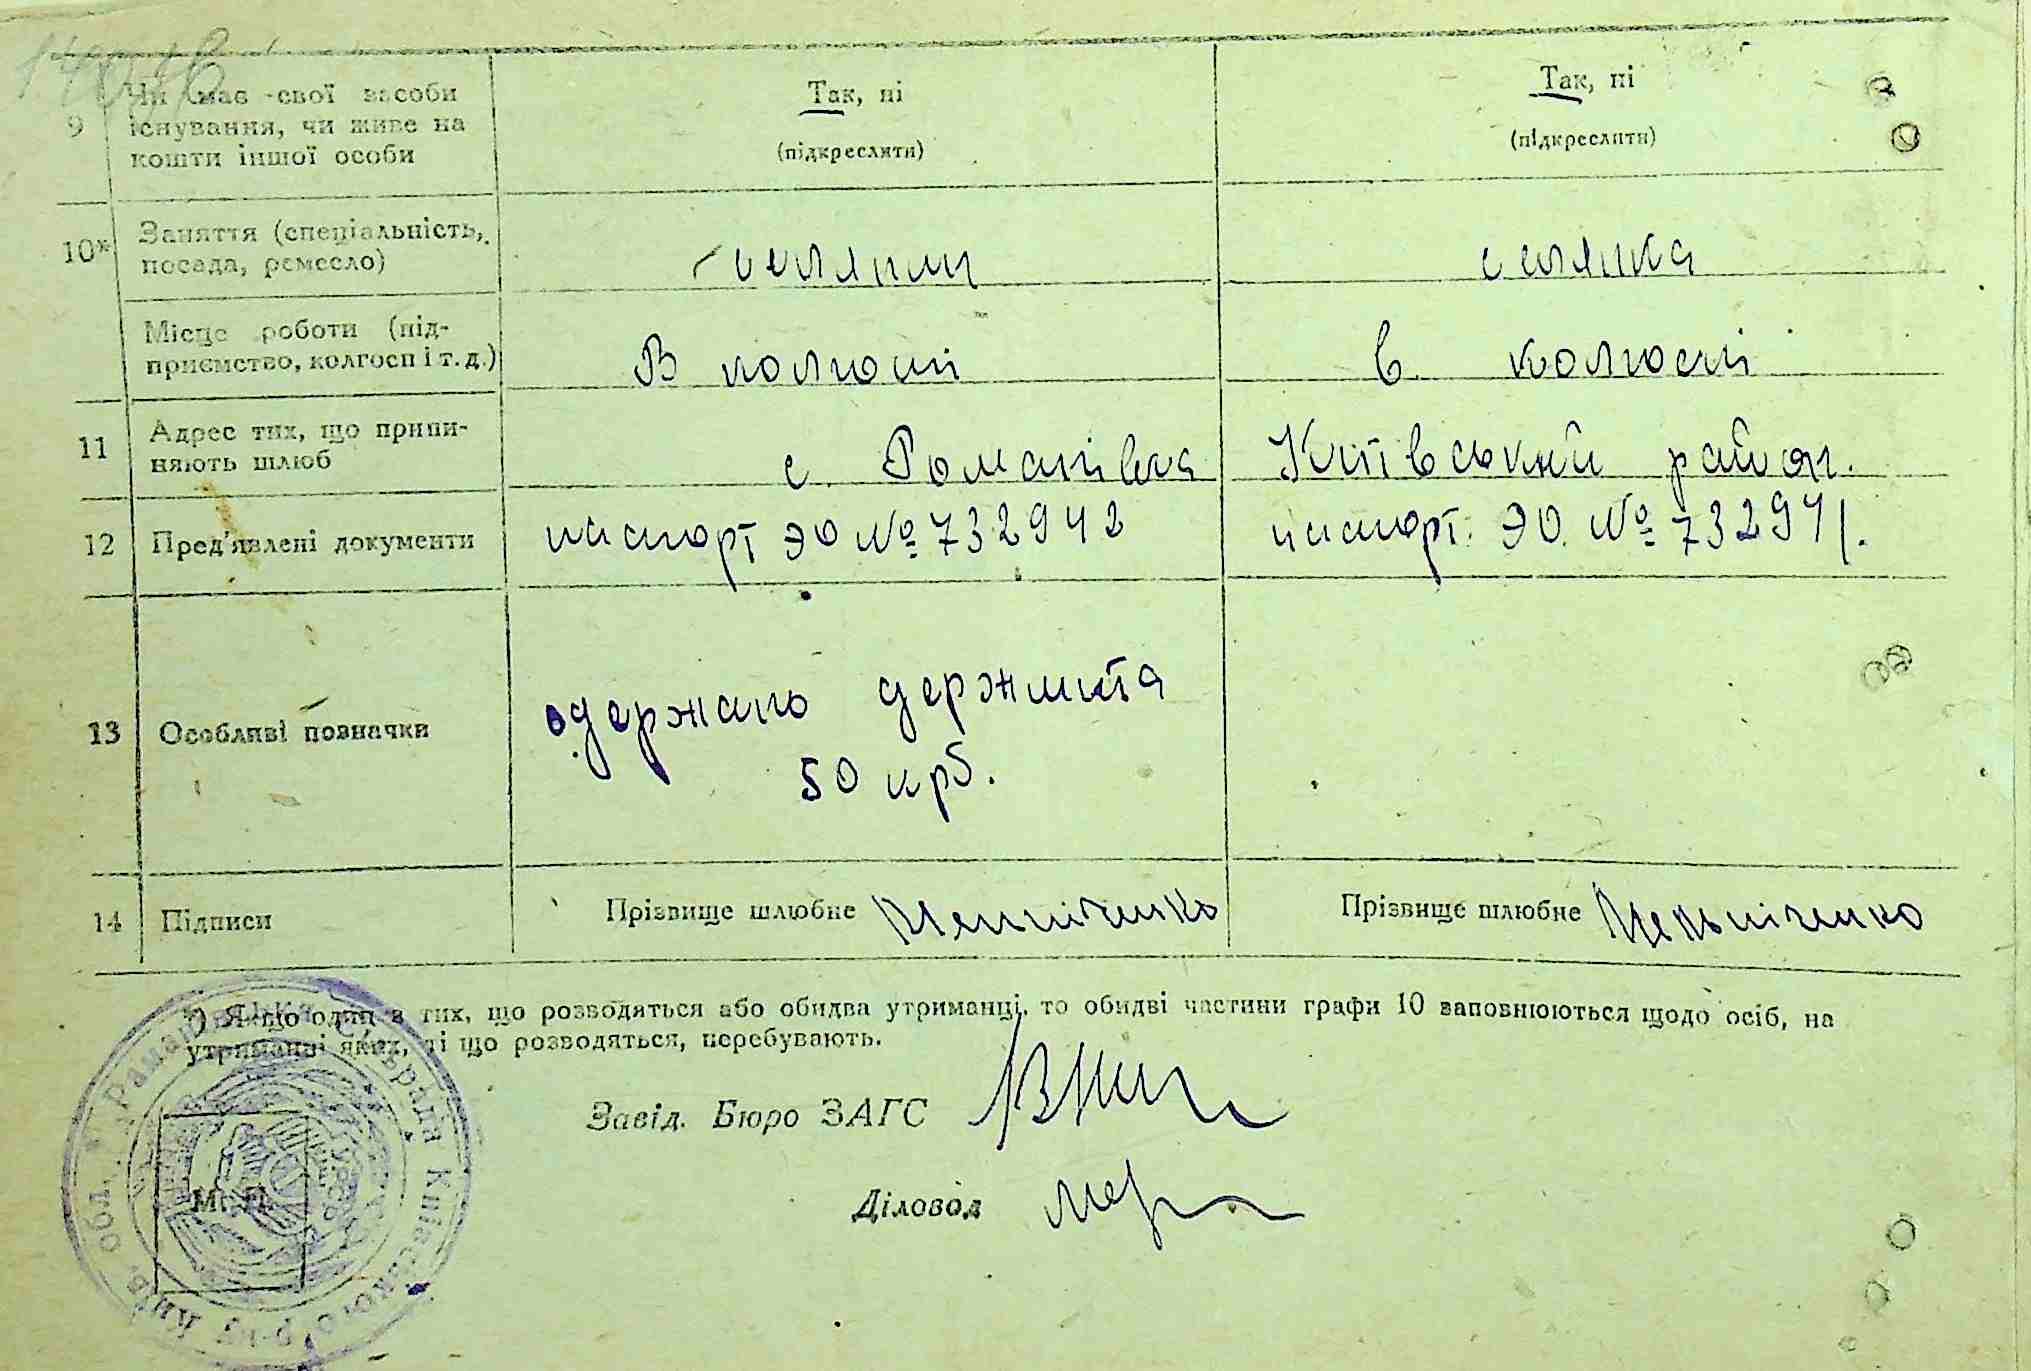 9 Чи має свої засоби Так, ні Так, ні
існування, чи живе на
кошти іншої особи (підкреслити) (підкреслити)
10* Заняття (спеціальність, селянин селянка
посада, ремесло)
Місце роботи (під- В колгоспі в колгоспі
приємство, колгосп і т. д.)
11 Адрес тих, що припи- с. Романівка Київський район.
няють шлюб
12 Пред'явлені документи паспорт ЭО № 732942 паспорт. ЭО. № 732971.
13 Особливі позначки одержано держмита
50 крб.
14 Підписи Прізвище шлюбне Мельніченко Прізвище шлюбне Мельніченко
*) Якщо один з тих, що розводяться або обидва утриманці, то обидві частини графи 10 заповнюються щодо осіб, на
утриманні яких, ті що розводяться, перебувають.
Завід. Бюро ЗАГС
Діловод
М. П.